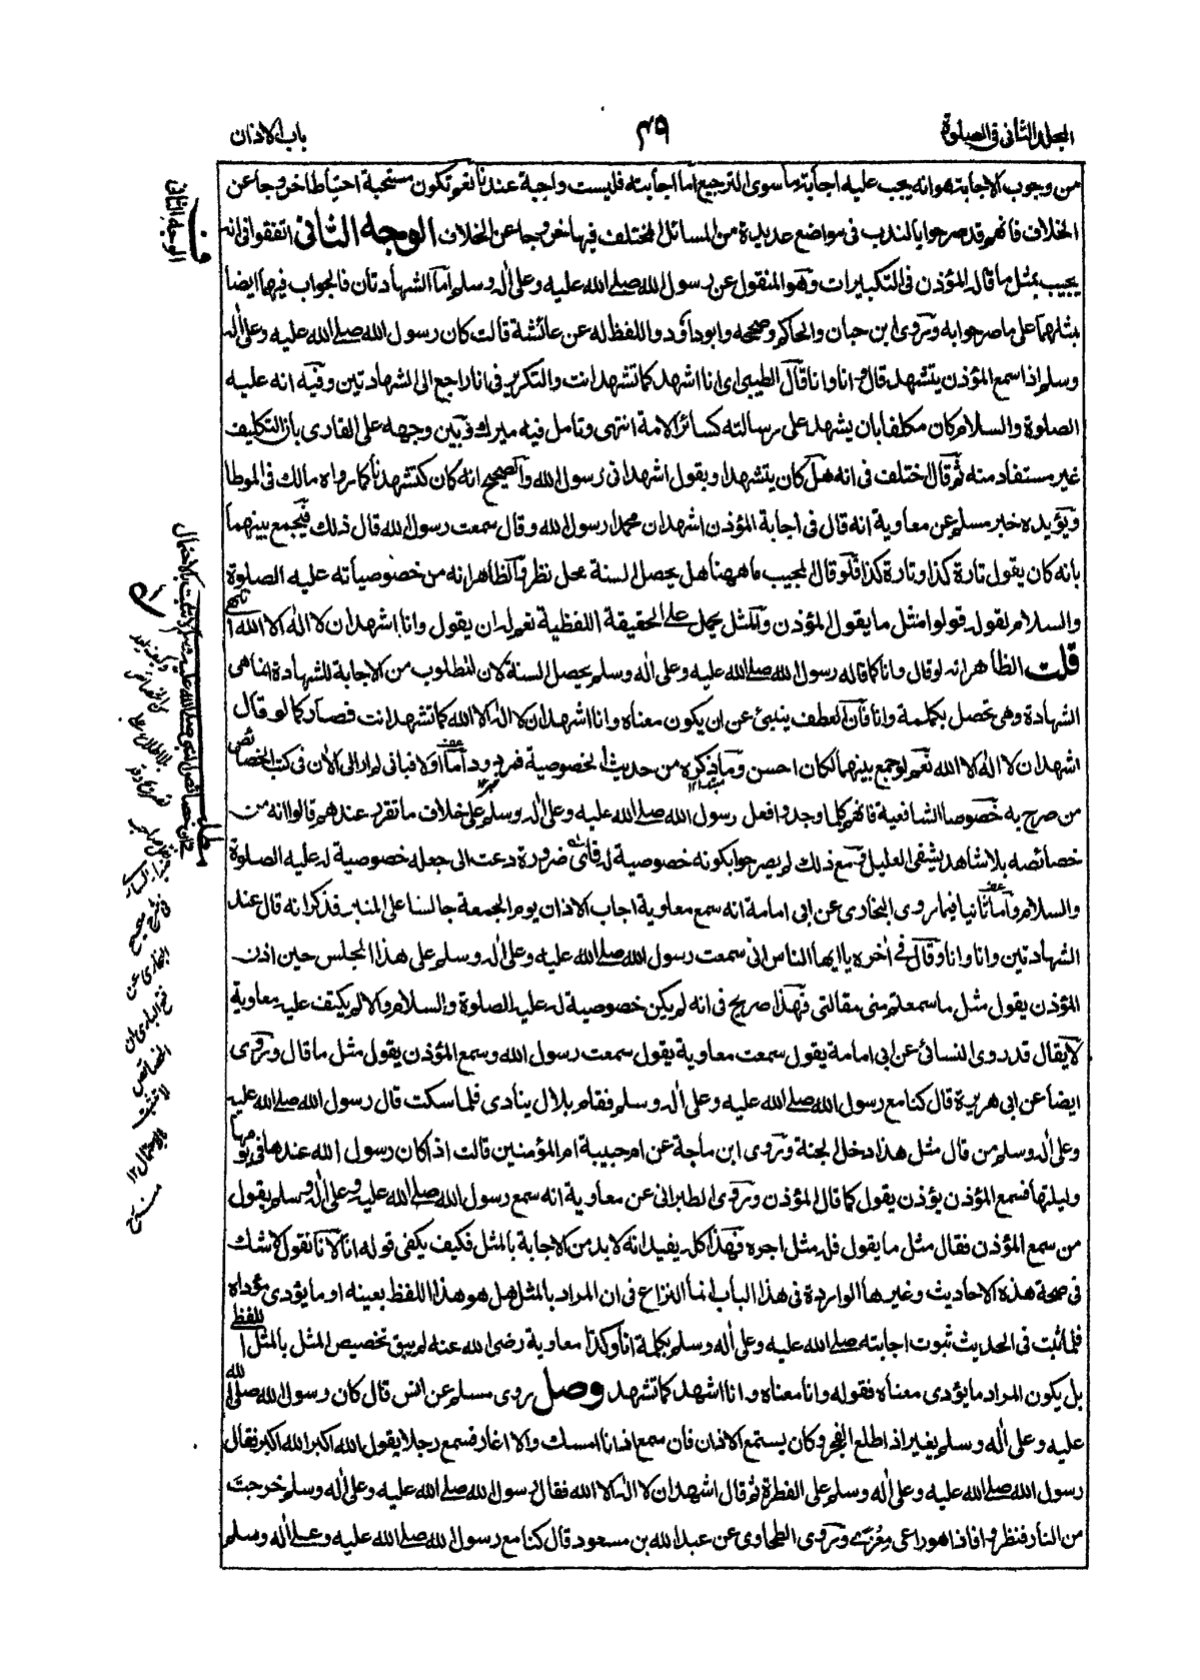 المجلد الثانی فی الصلوة
٤٩
باب الاذان
من وجوب الاجابة هو انه يجب عليه اجابة ما سوى الترجيع اما اجابته فليست واجبة عندنا نعم تكون مستحبة احتياطا خروجا عن
الخلاف فانهم قد صرحوا بالندب فی مواضع عديدة من المسائل المختلف فيها خروجا عن الخلاف الوجه الثانی اتفقوا فی انه
يجيب بمثل ما قال المؤذن فی التكبيرات وهو المنقول عن رسول الله صلے الله عليه وعلى اٰله وسلم اما الشهادتان فالجواب فيهما ايضا
بمثلهما على ما صرحوا به وروى ابن حبان والحاكم وصححه وابوداؤد واللفظ له عن عائشة قالت كان رسول الله صلے الله عليه وعلى اٰله
وسلم اذا سمع المؤذن يتشهد قال وانا وانا قال الطيبی ای انا اشهد كما تشهد انت والتكرير فی انا راجع الى الشهادتين وفيه انه عليه
الصلوة والسلام كان مكلفا بان يشهد على رسالته كسائر الامة انتهى وتامل فيه ميرك وبين وجهه على القاری بان التكليف
غير مستفاد منه ثم قال اختلف فی انه هل كان يتشهد او يقول اشهد انی رسول الله والصحيح انه كان كتشهدنا كما رواه مالك فی الموطا
ويؤيده خبر مسلم عن معاوية انه قال فی اجابة المؤذن اشهد ان محمدا رسول الله وقال سمعت رسول الله قال ذلك فيجمع بينهما
بانه كان يقول تارة كذا وتارة كذا فلو قال المجيب ما ههنا هل يحصل السنة محل نظر والظاهر انه من خصوصياته عليه الصلوة
والسلام لقوله قولوا مثل ما يقول المؤذن والمثل يحمل على الحقيقة اللفظية نعم له ان يقول وانا اشهد ان لا اله الا الله انتهى
قلت الظاهر انه لو قال وانا كما قاله رسول الله صلے الله عليه وعلى اٰله وسلم يحصل السنة لان المطلوب من الاجابة للشهادة انما هی
الشهادة وهی تحصل بكلمة وانا فان العطف ينبئ عن ان يكون معناه وانا اشهد ان لا اله الا الله كما تشهد انت فصار كما لو قال
اشهد ان لا اله الا الله نعم لو جمع بينهما لكان احسن وما ذكره من حديث الخصوصية فمردود اما اولا فبانی لم ار الى الاٰن فی كتب الخصائص
من صرح به خصوصا الشافعية فانهم كلما وجدوا فعل رسول الله صلے الله عليه وعلى اٰله وسلم على خلاف ما تقرر عندهم قالوا انه من
خصائصه بلا شاهد يشفی العليل فمع ذلك لم يصرحوا بكونه خصوصية له فای ضرورة دعت الى جعله خصوصية له عليه الصلوة
والسلام واما ثانيا فلما روى البخاری عن ابی امامة انه سمع معاوية اجاب الاذان يوم الجمعة جالسا على المنبر فذكر انه قال عند
الشهادتين وانا وانا وقال فی اٰخره يا ايها الناس انی سمعت رسول الله صلے الله عليه وعلى اٰله وسلم على هذا المجلس حين اذن
المؤذن يقول مثل ما سمعتم منی مقالتی فهذا صريح فی انه لم يكن خصوصية له عليه الصلوة والسلام والا لم يكتف عليه معاوية
لا يقال قد روى النسائی عن ابی امامة يقول سمعت معاوية يقول سمعت رسول الله وسمع المؤذن يقول مثل ما قال وروى
ايضا عن ابی هريرة قال كنا مع رسول الله صلے الله عليه وعلى اٰله وسلم فقام بلال ينادی فلما سكت قال رسول الله صلے الله عليه
وعلى اٰله وسلم من قال مثل هذا دخل الجنة وروى ابن ماجة عن ام حبيبة ام المؤمنين قالت اذا كان رسول الله عندها فی يومها
وليلتها فسمع المؤذن يؤذن يقول كما قال المؤذن وروى الطبرانی عن معاوية انه سمع رسول الله صلے الله عليه وعلى اٰله وسلم يقول
من سمع المؤذن فقال مثل ما يقول فله مثل اجره فهذا كله يفيد انه لا بد من الاجابة بالمثل فكيف يكفی قوله انا لانا نقول لا شك
فی صحة هذه الاحاديث وغيرها الواردة فی هذا الباب انما النزاع فی ان المراد بالمثل هل هو هذا اللفظ بعينه او ما يؤدی مؤداه
فلما ثبت فی الحديث ثبوت اجابته صلے الله عليه وعلى اٰله وسلم بكلمة انا وكذا معاوية رضی الله عنه لم يبق تخصيص المثل بالمثل اللفظے
بل يكون المراد ما يؤدی معناه فقوله وانا معناه وانا اشهد كما تشهد وصل روى مسلم عن انس قال كان رسول الله صلى الله
عليه وعلى اٰله وسلم يغير اذا طلع الفجر وكان يستمع الاذان فان سمع اذانا امسك والا اغار فسمع رجلا يقول الله اكبر الله اكبر فقال
رسول الله صلے الله عليه وعلى اٰله وسلم على الفطرة ثم قال اشهد ان لا اله الا الله فقال رسول الله صلے الله عليه وعلى اٰله وسلم خرجت
من النار فنظروا فاذا هو راعی معزے وروى الطحاوی عن عبد الله بن مسعود قال كنا مع رسول الله صلے الله عليه وعلے اٰله وسلم
الوجه الثانی
مطلب
خصائص النبی صلے الله عليه وسلم لا تثبت بالاحتمال